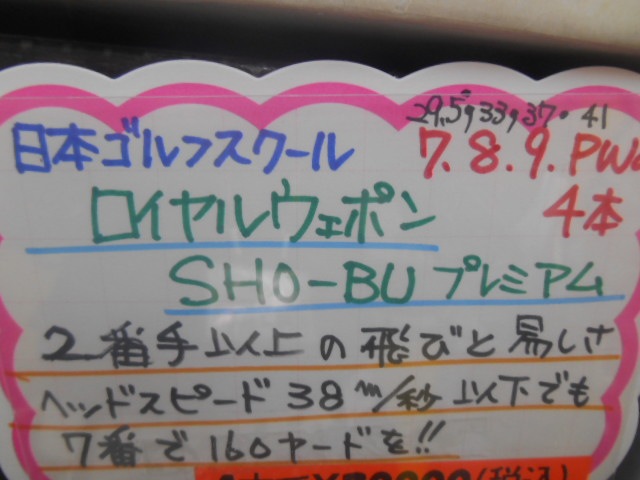 29.5, 33, 37. 41
日本ゴルフスクール 7.8.9.PW
ロイヤルウェポン 4本
SHO-BU プレミアム
2番手以上の飛びと易しさ
ヘッドスピード38m/秒以下でも
7番で160ヤードを!!
(税込)